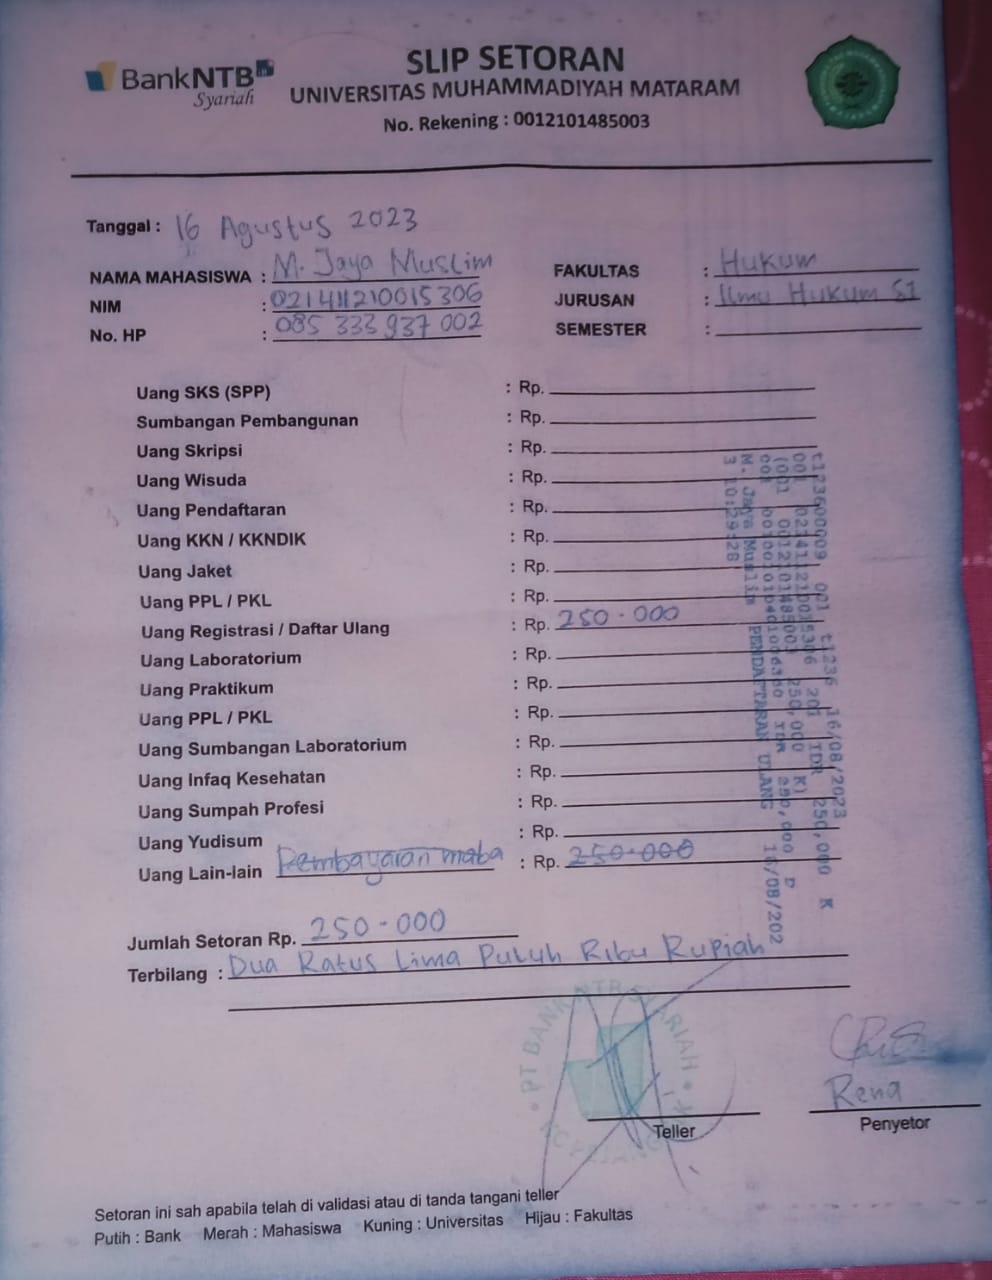 BankNTB
Syariah
SLIP SETORAN
UNIVERSITAS MUHAMMADIYAH MATARAM
No. Rekening : 0012101485003
Tanggal : 16 Agustus 2023
NAMA MAHASISWA : M. Jaya Muslim
NIM : 021411210015306
No. HP : 085 333 937 002
FAKULTAS : Hukum
JURUSAN : Ilmu Hukum S1
SEMESTER :
Uang SKS (SPP) : Rp.
Sumbangan Pembangunan : Rp.
Uang Skripsi : Rp.
Uang Wisuda : Rp.
Uang Pendaftaran : Rp.
Uang KKN / KKNDIK : Rp.
Uang Jaket : Rp.
Uang PPL / PKL : Rp.
Uang Registrasi / Daftar Ulang : Rp. 250.000
Uang Laboratorium : Rp.
Uang Praktikum : Rp.
Uang PPL / PKL : Rp.
Uang Sumbangan Laboratorium : Rp.
Uang Infaq Kesehatan : Rp.
Uang Sumpah Profesi : Rp.
Uang Yudisum : Rp.
Uang Lain-lain Pembayaran maba : Rp. 250.000
t123600009 001 t1236 16/08/2023
001 021411210015306 201 IDR 250,000 K
(001 0012101485003 250,000 K)
M. Jaya Muslim PENDAFTARAN ULANG 16/08/202
3 10:29:28
Jumlah Setoran Rp. 250.000
Terbilang : Dua Ratus Lima Puluh Ribu Rupiah
PT BANK NTB SYARIAH
Teller
Rena
Penyetor
Setoran ini sah apabila telah di validasi atau di tanda tangani teller
Putih : Bank Merah : Mahasiswa Kuning : Universitas Hijau : Fakultas